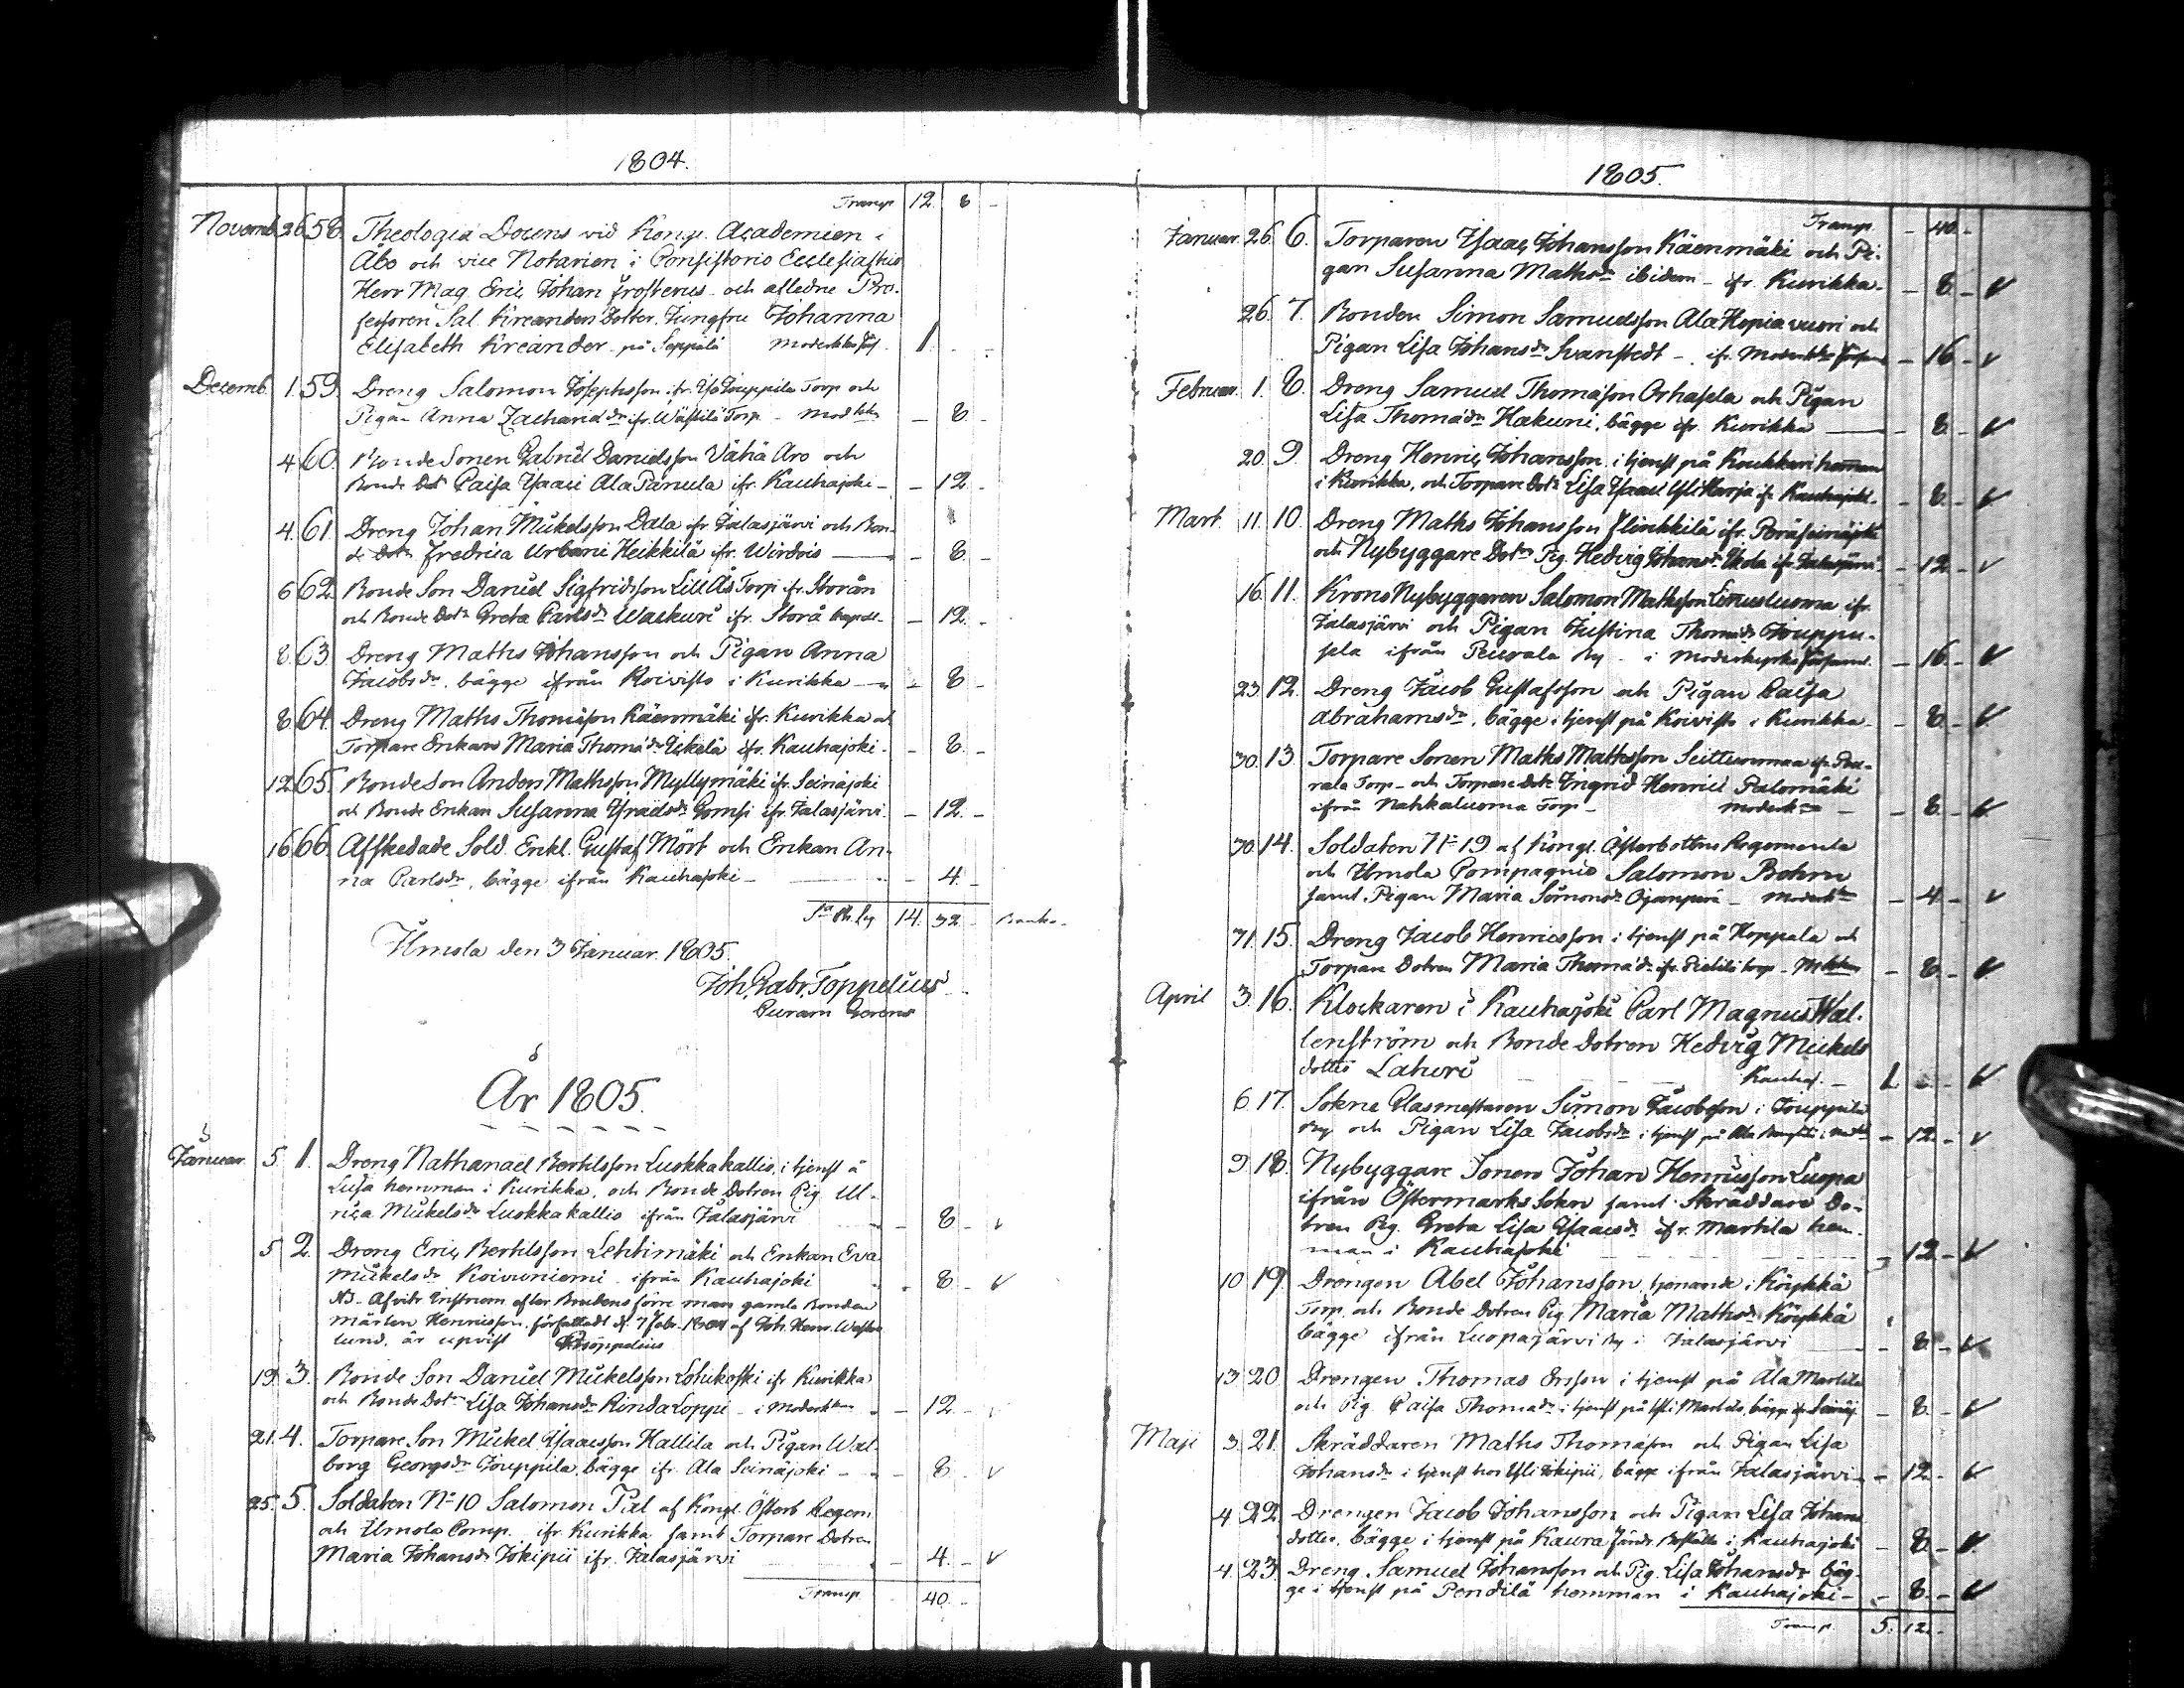 1804.
Transp 12 8 -
Novemb. 26 58. Theologiæ Docens vid Kongl. Academien i
Åbo och vice Notarien i Consistorio Ecclesiastico
Herr Mag. Eric Johan Frosterus och afledne Pro-
fessoren Sal. Kreanders Dotter, Jungfru Johanna
Elisabeth Kreander på Seppälä 1 - -
Decemb. 1 59. Dreng Salomon Josephsson ifr. Torp och
Pigan Anna Zachariædr ifr. Wästilä Torp - - 8 -
4 60. Bonde Sonen Gabriel Danielsson Vähä Aro och
Bonde Dotr Caisa Isaaci Ala Panula ifr. Kauhajoki - - 12 -
4 61. Dreng Johan Mickelsson Dala ifr. Jalasjärvi och Bon-
de Dotr Fredrica Urbani Heikkilä ifr. Wirdois - 8 -
6 62. Bonde Son Daniel Sigfridsson Lill Ås Torp ifr. Storån
och Bonde Dotr Greta Carlsdr Walkuri ifr. Storå - 12 -
8 63. Dreng Maths Johansson och Pigan Anna
Jacobsdr, bägge ifrån Koivisto i Kurikka - 8 -
8 64. Dreng Maths Thomasson Käenmäki ifr. Kurikka och
Torpare Enkan Maria Thomædr ifr. Kauhajoki - - 8 -
12 65. Bonde Son Anders Mathsson Myllymäki ifr. Seinäjoki
och Bonde Enkan Susanna Israelsdr ifr. Jalasjärvi - 12 -
16 66. Afskedade Sold. Enkl. Gustaf Mört och Enkan An-
na Carlsdr, bägge ifrån Kauhajoki - - 4 -
14. 32 - Banko -
Ilmola den 3 Januar. 1805.
Joh. Gabr. Toppelius
Curam Gerens
År 1805.
Januar. 5 1. Dreng Nathanael Bertilsson Luskkakallio, i tjenst å
Luja hemman i Kurikka, och Bonde Dotren Pig. Ul-
rica Mickelsdr Luskkakallio ifrån Jalasjärvi - 8 -
5 2. Dreng Eric Bertilsson Lehtimäki och Enkan Eva
Mickelsdr Koivuniemi ifrån Kauhajoki - 8 -
efter Brudens förre man gamle Bonden
Mårten Henricsson, författadt d. 7 Febr. 1804 af Joh. Henr.
lund, är upvist
19 3. Bonde Son Daniel Mickelsson ifr. Kurikka
och Bonde Dotr Lisa Johansdr Rinda Loppi - i - 12 -
21 4. Torpare Son Mickel Isaacsson Hallila och Pigan Wal-
borg Georgsdr Jouppila, bägge ifr. Ala Seinäjoki - - 8 -
25 5. Soldaten No 10 Salomon Pil af Kongl. Österb Regem.
och Ilmola Comp. ifr. Kurikka samt Torpare Dotren
Maria Johansdr Jokipii ifr. Jalasjärvi - 4 -
Transp 40 -
1805.
Transp. - 40 -
Januar. 26 6. Torparen Isaac Johansson Käenmäki och Pi-
gan Susanna Mathsdr ibidem - ifr. Kurikka - - 8 -
26 7. Bonden Simon Samuelsson Ala Hopiavuori och
Pigan Lisa Johansdr Svanstedt - ifr. - 16 -
Februar. 1 8. Dreng Samuel Thomasson Orhapela och Pigan
Lisa Thomædr Hakuni, bägge ifr. Kurikka - 8 -
20 9. Dreng Henric Johansson i tjenst på Koukkari hemman
i Kurikka, och Torpare Dotr Lisa Isaaci Yli Harja ifr. Kauhajoki - - 8 -
Mart. 11 10. Dreng Maths Johansson Flinkkilä ifr. Peräseinäjoki
och Nybyggare Dotr Pig. Hedvig Johansdr ifr. Jalasjärvi - 12 -
16 11. Krono Nybyggaren Salomon Mathsson ifr.
Jalasjärvi och Pigan Justina Thomædr Jouppu-
sela ifrån Peurala By - i - 16 -
23 12. Dreng Jacob Gustafsson och Pigan Caisa
Abrahamsdr, bägge i tjenst på Koivisto i Kurikka - - 8 -
30 13. Torpare Sonen Maths Mathsson ifr. Peu-
rala Torp - och Torpare Dotr Ingrid Henrici Palomäki
ifrån Nahkaluoma Torp - - 8 -
30 14. Soldaten No 19 af Kongl. Österbottns Regemente
och Ilmola Compagnie Salomon Bohm
samt Pigan Maria Simonsdr - 4 -
31 15. Dreng Jacob Henricsson i tjenst på Hoppala och
Torpare Dotren Maria Thomædr - 8 -
April 3 16. Klockaren i Kauhajoki Carl Magnus Wal-
lenström och Bonde Dotren Hedvig Mickels
dotter Lahuri Kauhaj. - 1 - -
6 17. Sokne Glasmestaren Simon Jacobsson i Jouppila
By och Pigan Lisa Jacobsdr i tjenst på - 12 -
9 18. Nybyggare Sonen Johan Henricsson Luopa
ifrån Östermarks Sokn samt Skräddare Do-
tren Pig. Greta Lisa Isaacsdr ifr. Martila hem-
man i Kauhajoki - 12 -
10 19. Drengen Abel Johansson, tjenande i Köykkä
Torp, och Bonde Dotren Pig. Maria Mathsdr Köykkä
bägge ifrån Luopajärvi By i Jalasjärvi - 8 -
13 20. Drengen Thomas Ersson i tjenst på Ala Martila
och Pig. Caisa Thomædr i tjenst på Yli Martila, bägge ifr. - 8 -
Maji 3 21. Skräddaren Maths Thomasson och Pigan Lisa
Johansdr i tjenst hos Yli Jokipii, bägge ifrån Jalasjärvi - - 12 -
4 22. Drengen Jacob Johansson och Pigan Lisa Johans
dotter, bägge i tjenst på Kaura i Kauhajoki - 8 -
4 23. Dreng Samuel Johansson och Pig. Lisa Johansdr bäg-
ge i tjenst på Pendilä hemman i Kauhajoki - - 8 -
Transp. 5. 12 -